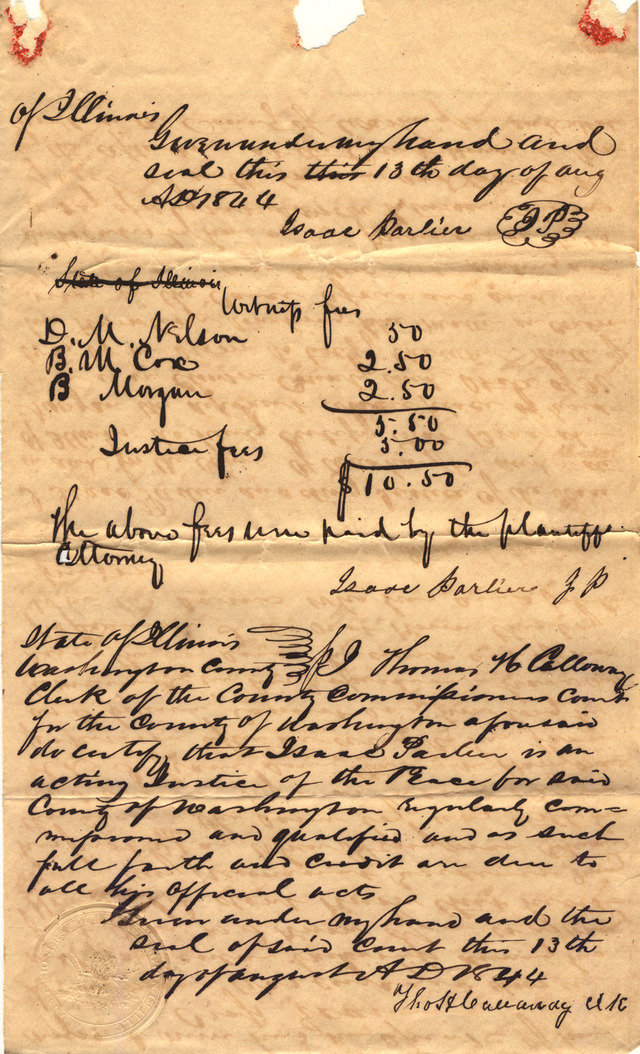 of Illinois
Given under my hand and
seal this this 13th day of aug
AD 1844
Isaac Parlier JP
State of Illinois
Witness fees
D. M. Nelson 50
B. M. Cox 2.50
B Morgan 2.50
5.50
Justice fees 5.00
$10.50
The above fees were paid by the plantiffs
attorney
Isaac Parlier J P
State of Illinois
Washington County I Thomas H Calloway
Clerk of the County Commissioners Court
for the County of Washington aforesaid
do certify that Isaac Parlier is an
acting Justice of the Peace for said
County of Washington regularly com=
missioned and qualified and as such
full faith and credit are due to
all his official acts
Given under my hand and the
seal of said Court this 13th
day of august A D 1844
Tho H Calloway Clk